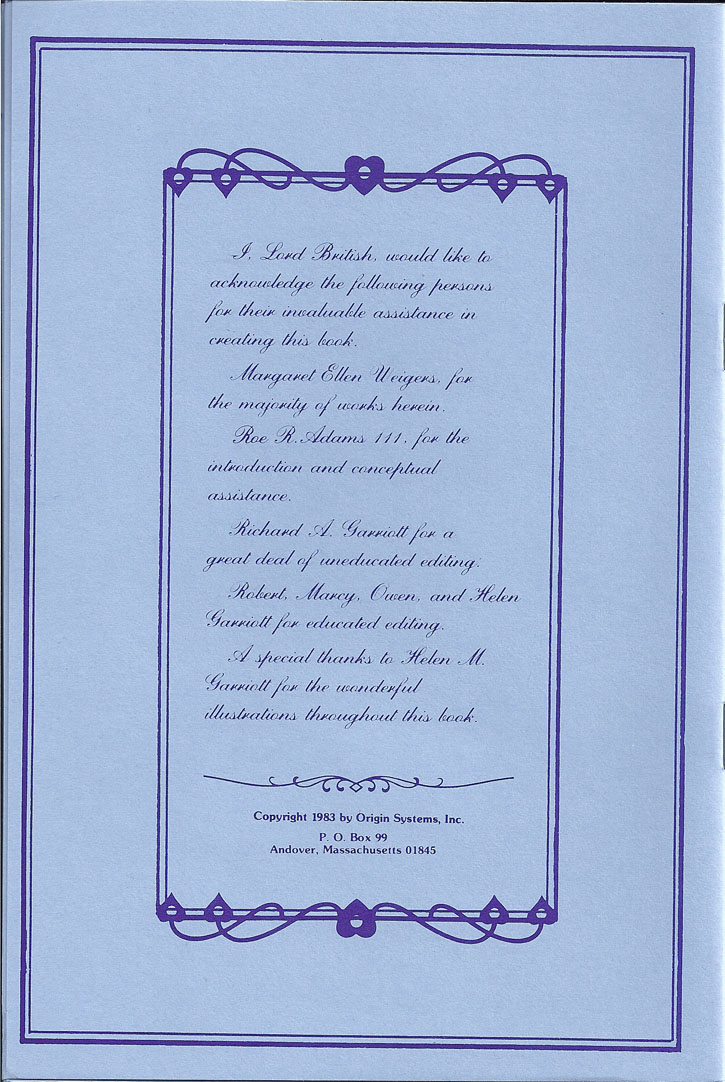 I, Lord British, would like to
acknowledge the following persons
for their invaluable assistance in
creating this book.
Margaret Ellen Weigers, for
the majority of works herein.
Roe R. Adams 111, for the
introduction and conceptual
assistance.
Richard A. Garriott for a
great deal of uneducated editing.
Robert, Marcy, Owen, and Helen
Garriott for educated editing.
A special thanks to Helen M.
Garriott for the wonderful
illustrations throughout this book.
Copyright 1983 by Origin Systems, Inc.
P. O. Box 99
Andover, Massachusetts 01845